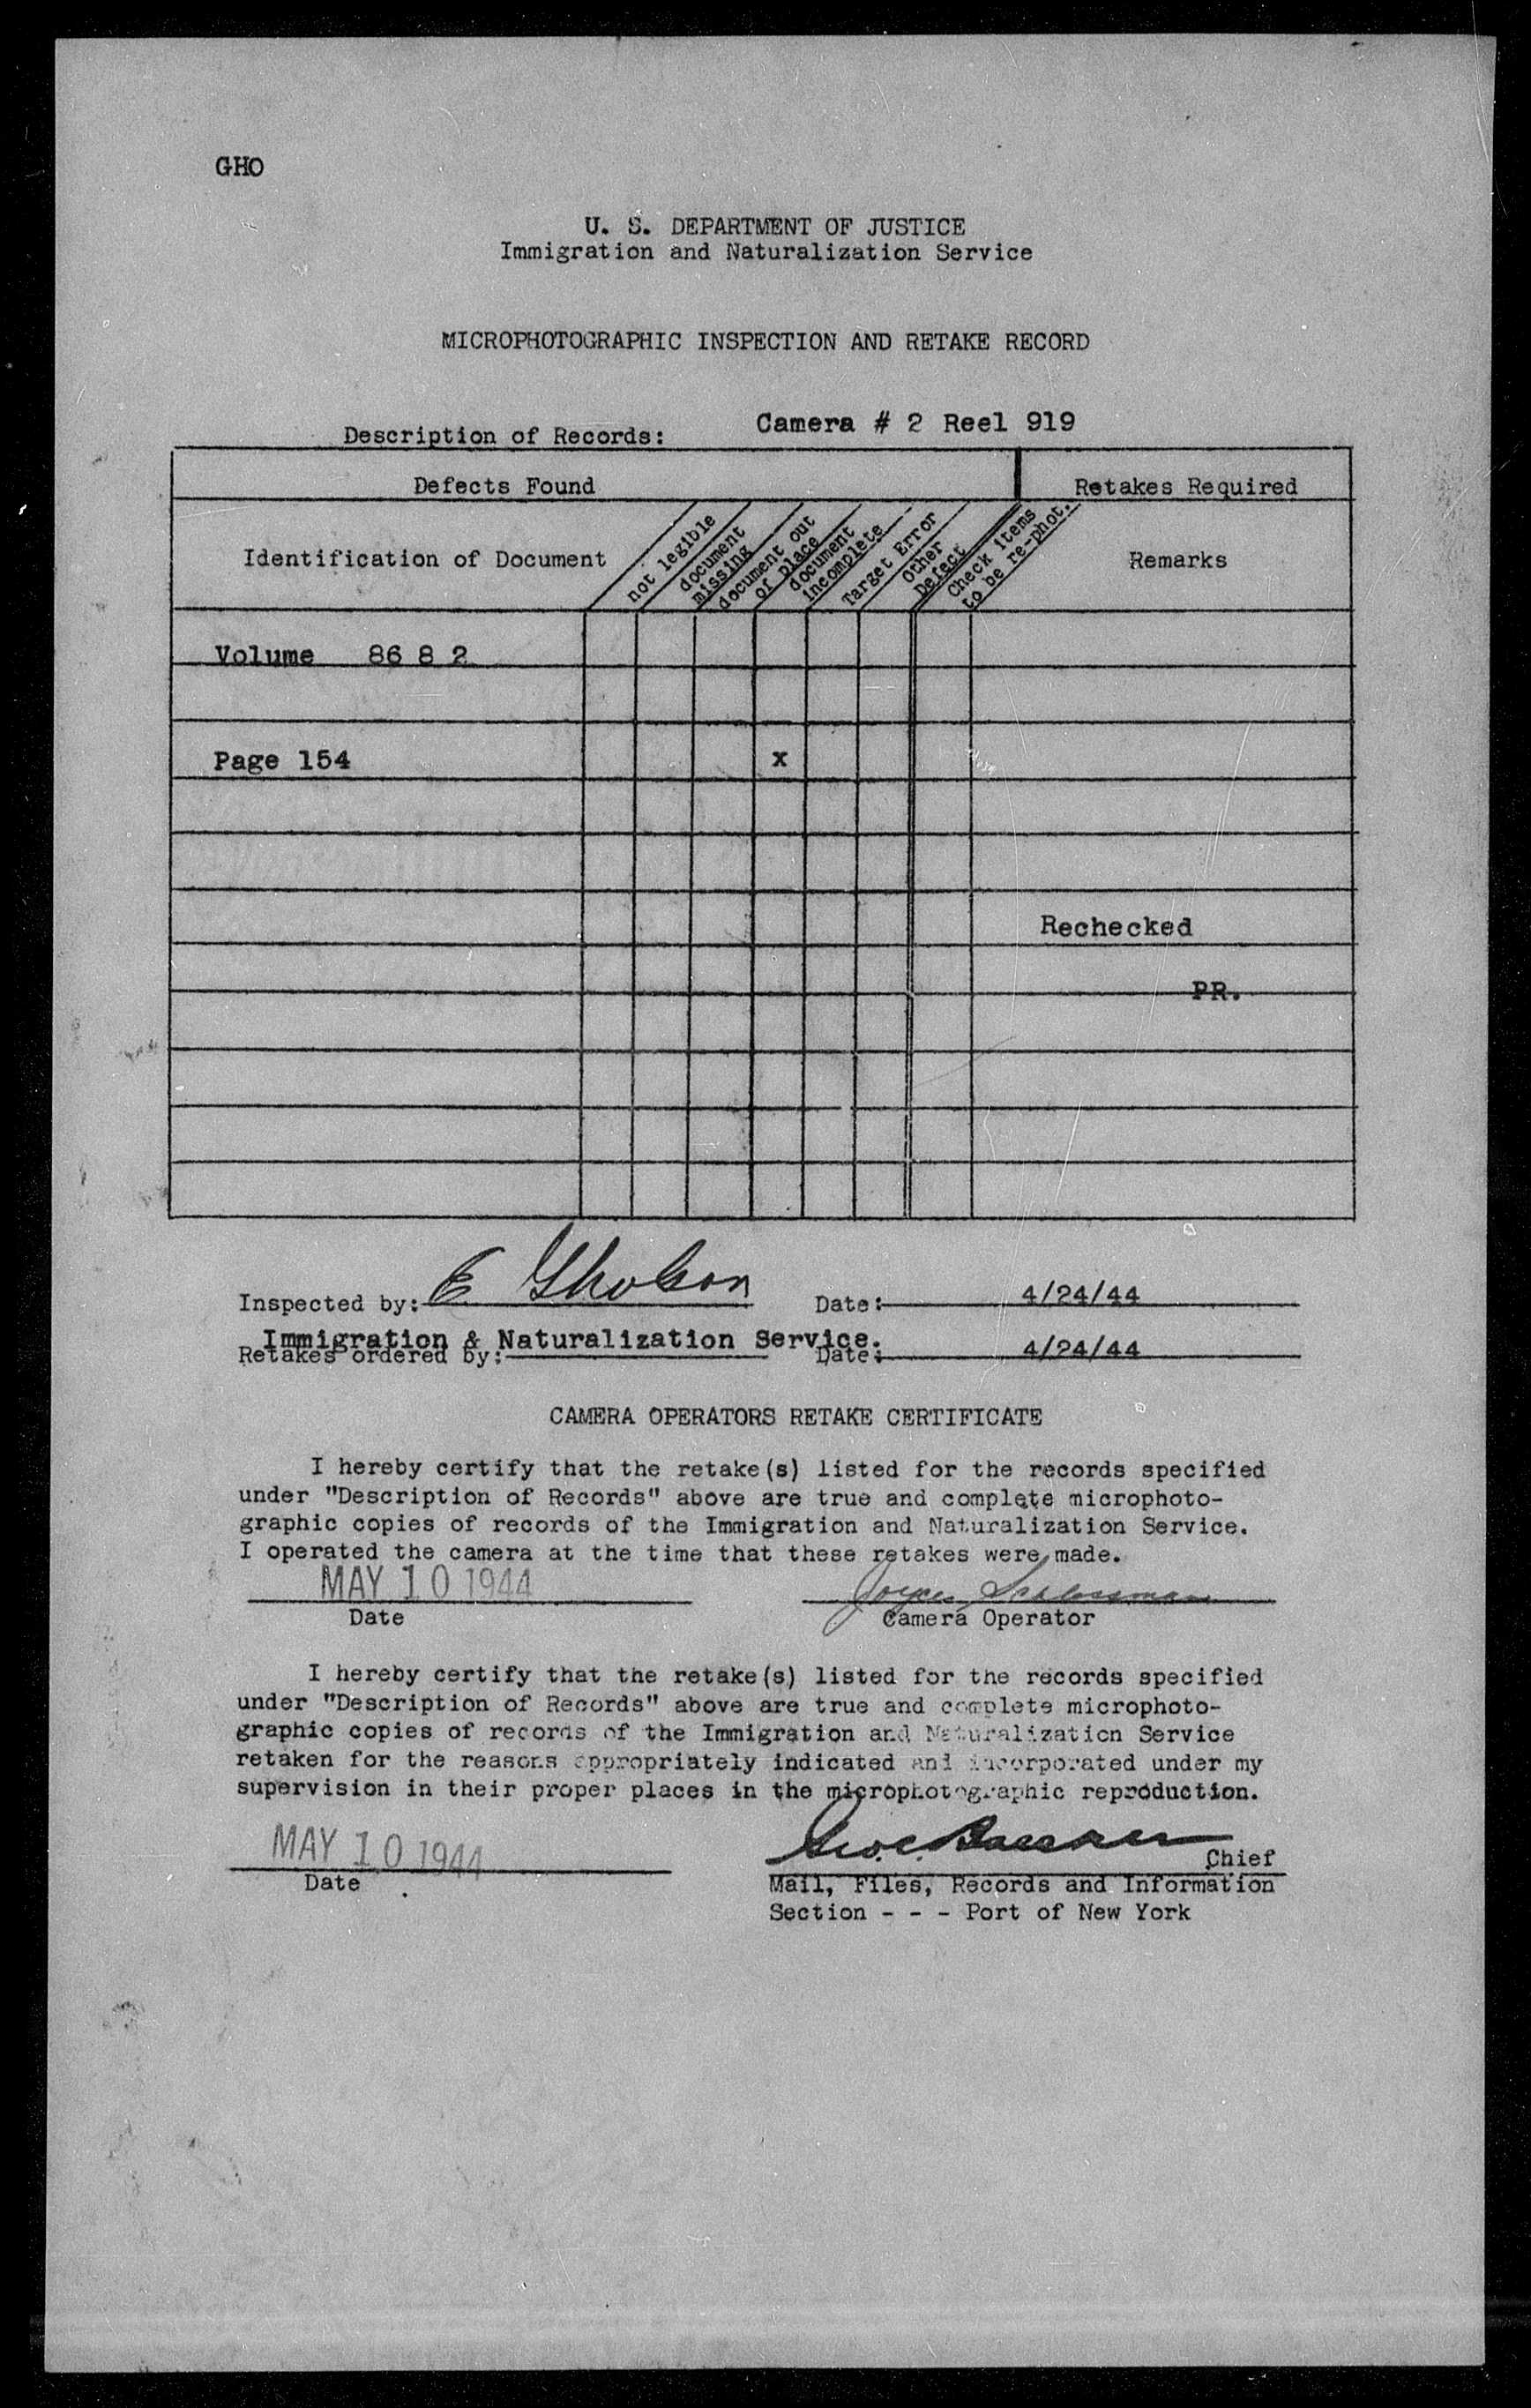 GHO
U. S. DEPARTMENT OF JUSTICE
Immigration and Naturalization Service
MICROPHOTOGRAPHIC INSPECTION AND RETAKE RECORD
Description of Records: Camera # 2 Reel 919
Defects Found Retakes Required
Identification of Document
not legible
document
missing
document out
of place
document
incomplete
Target Error
Other
Defect
Check items
to be re-phot.
Remarks
Volume 86 8 2
Page 154 x
Rechecked
PR.
Inspected by: E Date: 4/24/44
Immigration & Naturalization Service.
Retakes ordered by: Date: 4/24/44
CAMERA OPERATORS RETAKE CERTIFICATE
I hereby certify that the retake(s) listed for the records specified
under "Description of Records" above are true and complete microphoto-
graphic copies of records of the Immigration and Naturalization Service.
I operated the camera at the time that these retakes were made.
MAY 10 1944
Date Camera Operator
I hereby certify that the retake(s) listed for the records specified
under "Description of Records" above are true and complete microphoto-
graphic copies of records of the Immigration and Naturalization Service
retaken for the reasons appropriately indicated and incorporated under my
supervision in their proper places in the microphotographic reproduction.
MAY 10 1944
Chief
Date Mail, Files, Records and Information
Section - - - Port of New York